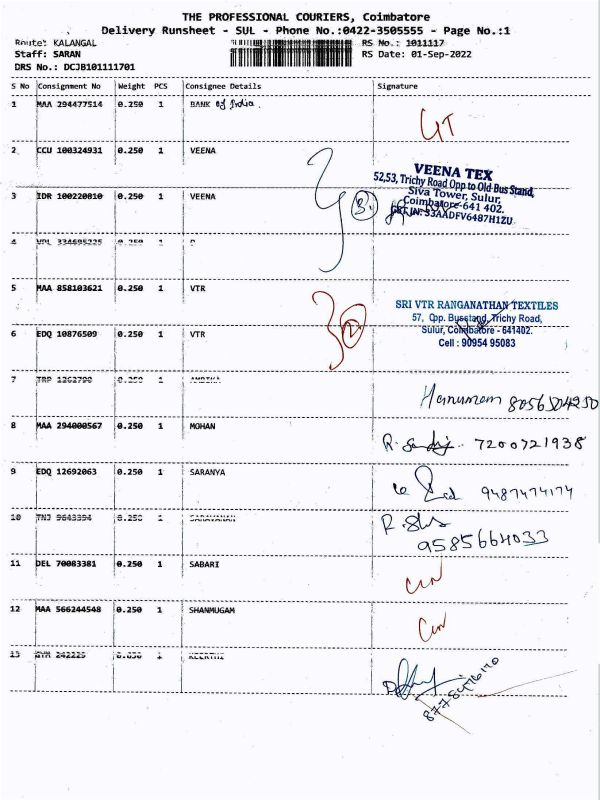 THE PROFESSIONAL COURIERS, Coimbatore
Delivery Runsheet - SUL - Phone No.:0422-3505555 - Page No.:1
Route: KALANGAL RS No.: 1011117
Staff: SARAN RS Date: 01-Sep-2022
DRS No.: DCJB101111701
S No Consignment No Weight PCS Consignee Details Signature
1 MAA 294477514 0.250 1 BANK of India
2 CCU 100324931 0.250 1 VEENA
VEENA TEX
52,53, Trichy Road Opp to Old Bus Stand,
Siva Tower, Sulur,
Coimbatore-641 402.
GST IN: 33AADFV6487H1ZU
3 IDR 100220810 0.250 1 VEENA
4 VPL 334695225 0.250 1
5 MAA 858103621 0.250 1 VTR
SRI VTR RANGANATHAN TEXTILES
57, Opp. Busstand, Trichy Road,
Sulur, Coimbatore - 641402.
Cell : 90954 95083
6 EDQ 10876509 0.250 1 VTR
7 TRP 1262790 0.250 1 AMBIKA
Hanumam 8056504250
8 MAA 294000567 0.250 1 MOHAN
7200721938
9 EDQ 12692063 0.250 1 SARANYA
9487474174
10 TNJ 9643394 0.250 1 SARAVANAN
9585664033
11 DEL 70083381 0.250 1 SABARI
12 MAA 566244548 0.250 1 SHANMUGAM
13 1 KEERTHI